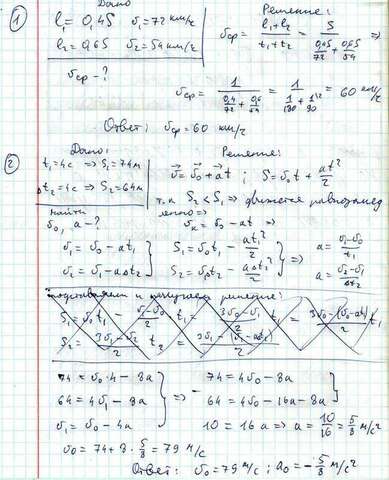 ① Дано
l₁ = 0,4S  υ₁ = 72 км/г
l₂ = 0,6S  υ₂ = 54 км/г
υср - ?
Решение:
υср = (l₁ + l₂)/(t₁ + t₂) = S/(0,4S/72 + 0,6S/54) ⇒
υср = 1/(0,4/72 + 0,6/54) = 1/(1/180 + 1/90) = 60 км/г
Ответ: υср = 60 км/г
② Дано:
t₁ = 4с ⇒ S₁ = 74м
Δt₂ = 4с ⇒ S₂ = 64м
найти
υ₀, a - ?
Решение:
υ⃗ = υ⃗₀ + a⃗t ; S = υ₀t + at²/2
т.к S₂ < S₁ ⇒ движется равнозамед
ленно ⇒ υₖ = υ₀ - at ⇒
υ₁ = υ₀ - at₁ } S₁ = υ₀t₁ - at₁²/2 } ⇒ a = (υ₁ - υ₀)/t₁
υ₂ = υ₁ - aΔt₂ } S₂ = υ₀t₂ - aΔt₂²/2 } a = (υ₂ - υ₁)/Δt₂
подставляем и получаем решение:
74 = υ₀·4 - 8a
64 = 4υ₁ - 8a
υ₁ = υ₀ - 4a
⇒ 74 = 4υ₀ - 8a
64 = 4υ₀ - 16a - 8a
10 = 16a ⇒ a = 10/16 = 5/8 м/с²
υ₀ = 74 + 8·5/8 = 79 м/с
Ответ: υ₀ = 79 м/с ; a₀ = -5/8 м/с²